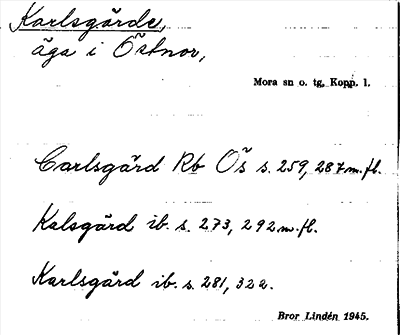 Karlsgärde,
äga i Östnor,
Mora sn o. tg, Kopp. l.
Carlsgärd Rb Ös s. 259, 287 m.fl.
Kalsgärd ib. s. 273, 292 m.fl.
Karlsgärd ib. s. 281, 322.
Bror Lindén 1945.